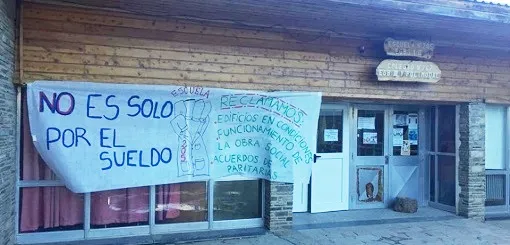 NO ES SOLO
POR EL
SUELDO
ESCUELA
RECLAMAMOS:
.EDIFICIOS EN CONDICIONES
.FUNCIONAMIENTO DE
LA OBRA SOCIAL
.ACUERDOS DE
PARITARIAS